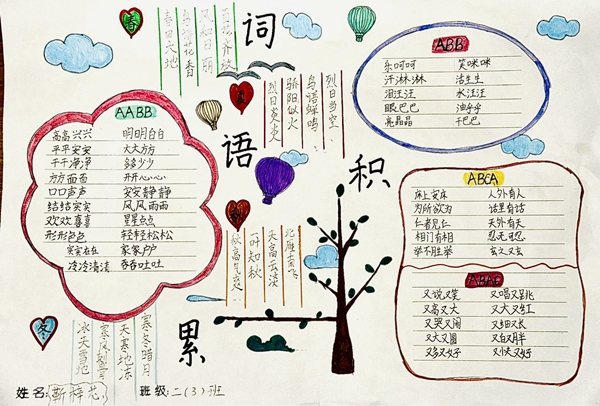 词语积累
春
春回大地
鸟语花香
风和日丽
百花齐放
夏
烈日炎炎
骄阳似火
鸟语蝉鸣
烈日当空
秋
秋高气爽
一叶知秋
天高云淡
北雁南飞
冬
冰天雪地
寒风刺骨
天寒地冻
寒冬腊月
AABB
高高兴兴 明明白白
平平安安 大大方方
干干净净 多多少少
方方面面 开开心心
口口声声 安安静静
结结实实 风风雨雨
欢欢喜喜 星星点点
形形色色 轻轻松松
实实在在 家家户户
冷冷清清 吞吞吐吐
ABB
乐呵呵 笑咪咪
汗淋淋 活生生
泪汪汪 水汪汪
眼巴巴 油牟牟
亮晶晶 干巴巴
ABCA
床上安床 人外有人
为所欲为 话里有话
仁者见仁 天外有天
相门有相 忍无可忍
举不胜举 玄之又玄
ABAC
又说又笑 又唱又跳
又高又大 又大又红
又哭又闹 又细又长
又大又圆 又白又胖
又多又好 又快又好
姓名:靳梓芯
班级:二(3)班